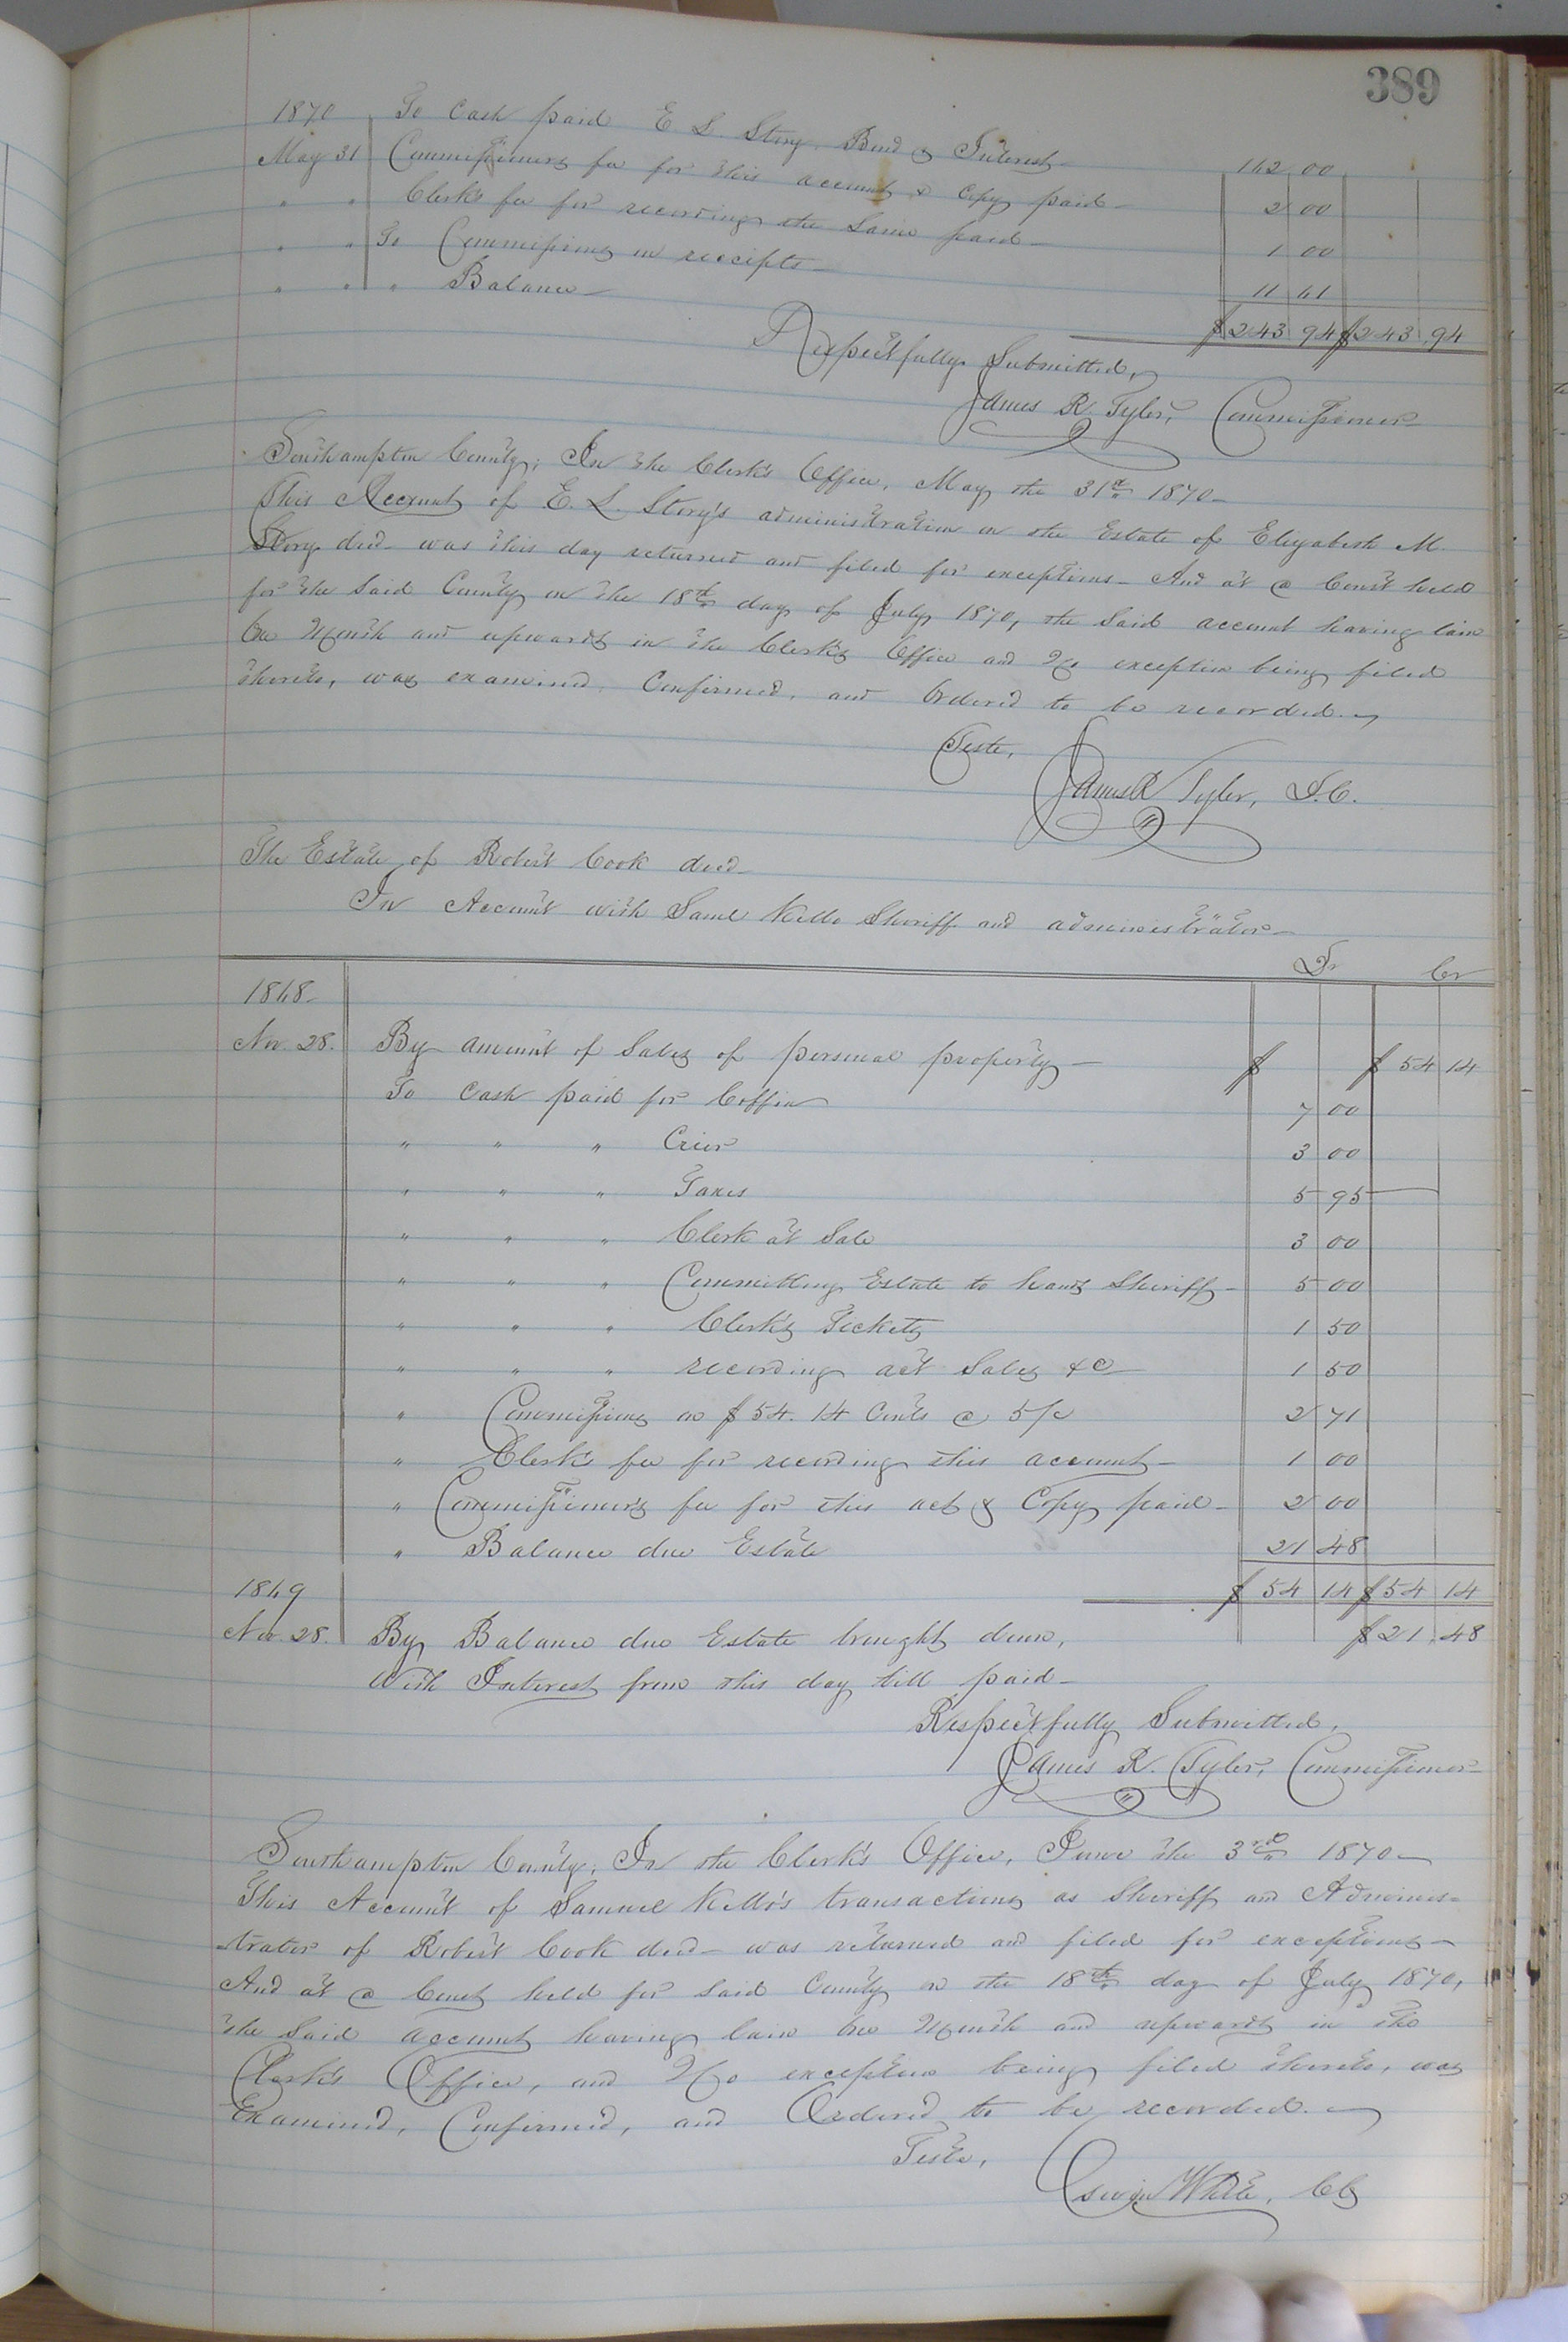 389
1870 To Cash paid E. L. Story, Bond & Interest 162 00
May 31 Commissioners fee for this account & copy paid 2 00
" " Clerk's fee for recording the Same paid 1 00
" " To Commissions on receipts 11 61
" " " Balance
$243 94 $243 94
Respectfully Submitted,
James R Tyler, Commissioner
Southampton County; In the Clerk's Office, May the 31st 1870
This Account of E. L. Story's administration on the Estate of Elizabeth M.
Story decd was this day returned and filed for exceptions And at a Court held
for the said County on the 18th day of July 1870, the said account having lain
One Month and upwards in the Clerks Office and No exception being filed
thereto, was examined, Confirmed, and Ordered to be recorded.
Teste, James R Tyler, D.C.
The Estate of Robert Cook decd
In Account with Saml Kello Sheriff and administrator
Dr Cr
1868
Nov. 28. By amount of Sales of personal property $ $54 14
To Cash paid for Coffin 7 00
" " " Crier 3 00
" " " Taxes 5 95
" " " Clerk at Sale 3 00
" " " Committing Estate to hands Sheriff 5 00
" " " Clerk's Tickets 1 50
" " " recording act Sales &c 1 50
" Commissions on $54.14 Cents @ 5 /c 2 71
" Clerk's fee for recording this account 1 00
" Commissioner's fee for this act & Copy paid 2 00
" Balance due Estate 21 48
1869 $54 14 $54 14
Nov. 28. By Balance due Estate brought down, $21.48
With Interest from this day till paid
Respectfully Submitted,
James R. Tyler, Commissioner
Southampton County; In the Clerk's Office, June the 3rd 1870
This Account of Samuel Kello's transactions as Sheriff and Adminis=
=trator of Robert Cook decd was returned and filed for exceptions
And at a Court held for said County on the 18th day of July 1870,
the said account having lain One Month and upwards in the
Clerk's Office, and No exception being filed thereto, was
Examined, Confirmed, and Ordered to be recorded.
Teste, Edwin White, Clk